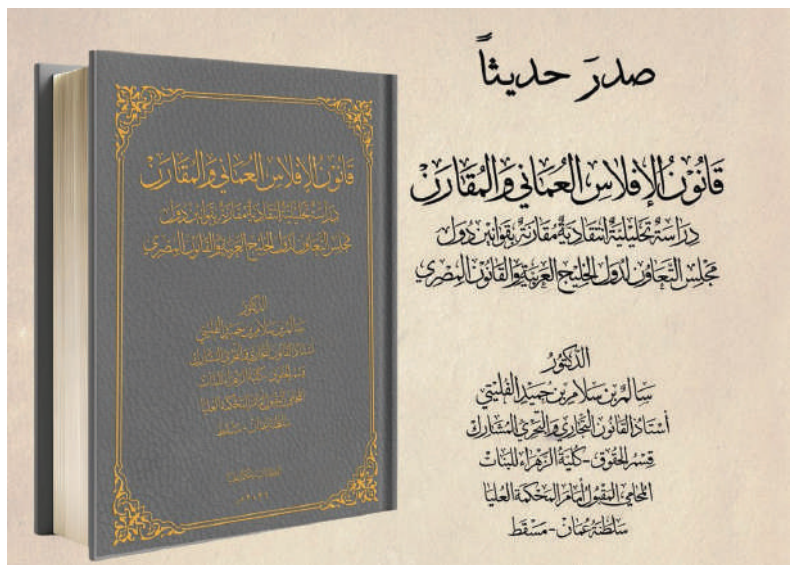 صدرَ حديثاً
قَانُونُ الإِفْلَاسِ العُمَانِي وَالمُقَارَنْ
دِرَاسَةٌ تَحْلِيلِيَّةٌ انْتِقَادِيَّةٌ مُقَارَنَةٌ بِقَوَانِيْنِ دُوَل
مَجْلِسِ التَّعَاوُنِ لِدُوَلِ الخَلِيْجِ العَرَبِيَّةِ وَالقَانُوْنِ المِصْرِي
الدُّكْتُورُ
سَالِمُ بْن سَلَامِ بْن حُمَيْدِ الفُلَيْتِي
أُسْتَاذُ القَانُونِ التِّجَارِي وَالبَحْرِي المُشَارِك
قِسْمُ الحُقُوقِ - كُلِّيَةُ الزَّهْرَاءِ لِلْبَنَاتِ
المُحَامِي المَقْبُولُ أَمَامَ المَحْكَمَةِ العُلْيَا
سَلْطَنَةُ عُمَانَ - مَسْقَط
قَانُونُ الإِفْلَاسِ العُمَانِي وَالمُقَارَنْ
دِرَاسَةٌ تَحْلِيلِيَّةٌ انْتِقَادِيَّةٌ مُقَارَنَةٌ بِقَوَانِيْنِ دُوَل
مَجْلِسِ التَّعَاوُنِ لِدُوَلِ الخَلِيْجِ العَرَبِيَّةِ وَالقَانُوْنِ المِصْرِي
الدُّكْتُورُ
سَالِمُ بْن سَلَامِ بْن حُمَيْدِ الفُلَيْتِي
أُسْتَاذُ القَانُونِ التِّجَارِي وَالبَحْرِي المُشَارِك
قِسْمُ الحُقُوقِ - كُلِّيَةُ الزَّهْرَاءِ لِلْبَنَاتِ
المُحَامِي المَقْبُولُ أَمَامَ المَحْكَمَةِ العُلْيَا
سَلْطَنَةُ عُمَانَ - مَسْقَط